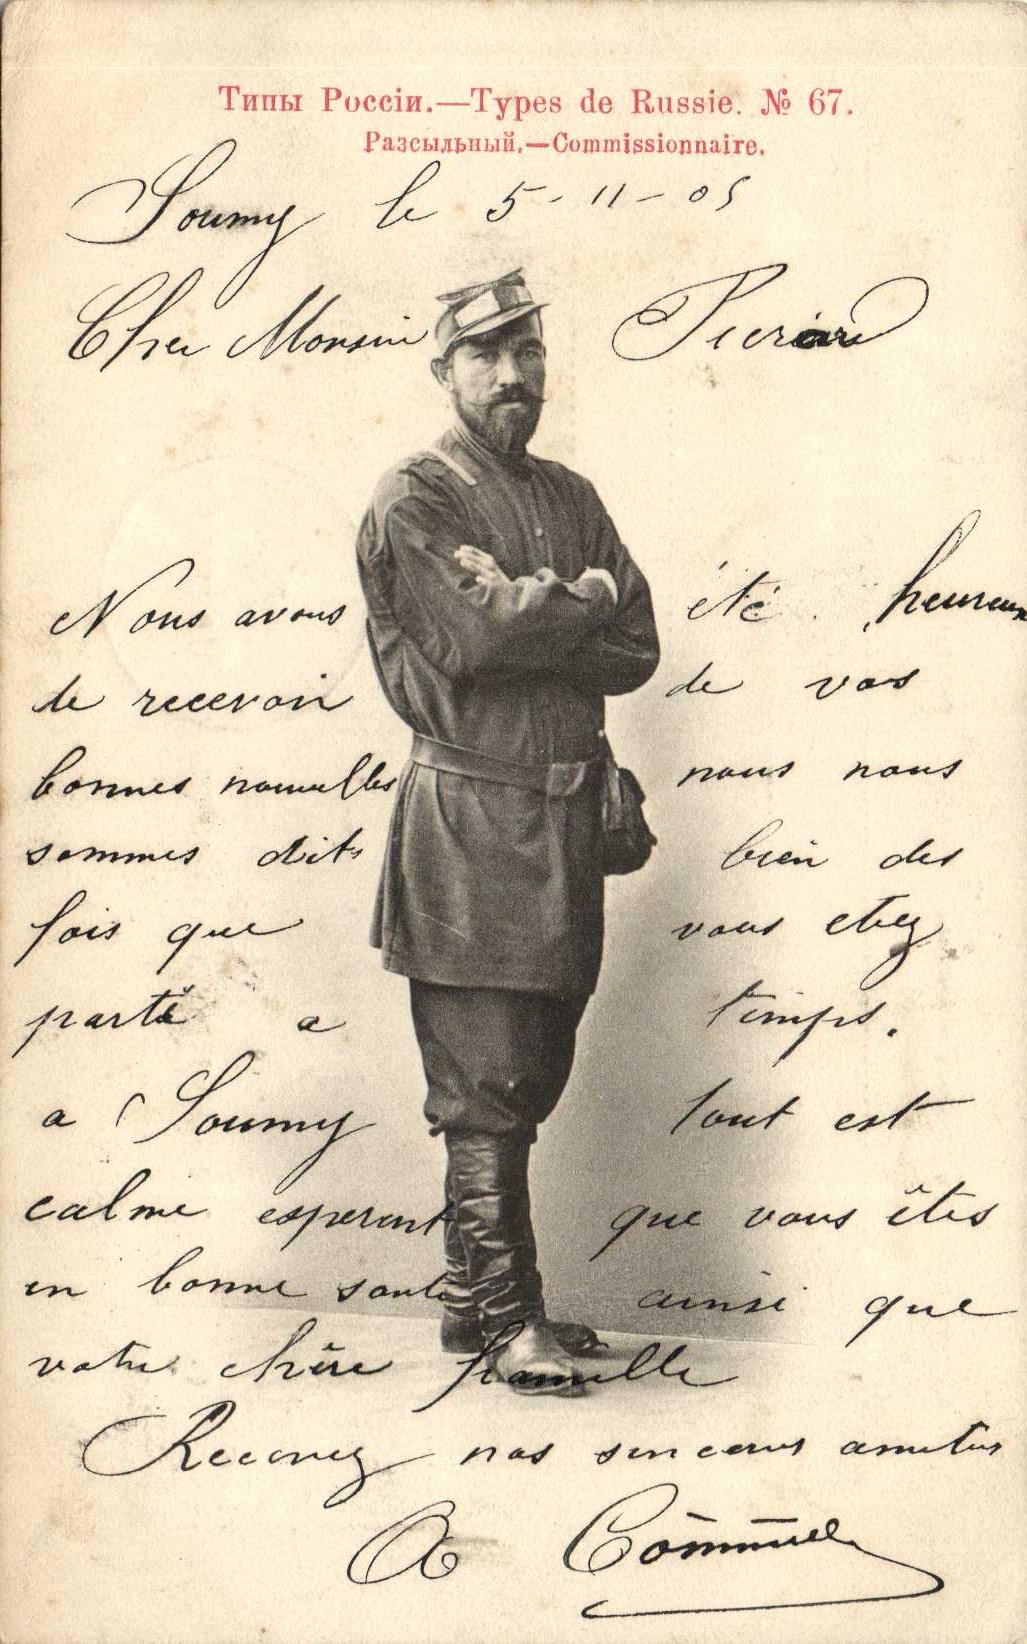 Типы Россіи.—Types de Russie. № 67.
Разсыльный.—Commissionnaire.
Soumy le 5-11-05
Cher Monsieur Pierard
Nous avons été heureux
de recevoir de vos
bonnes nouvelles nous nous
sommes dits bien des
fois que vous etiez
parti a temps.
a Soumy tout est
calme esperant que vous êtes
en bonne santé ainsi que
votre chère famille
Recevez nos sinceres amities
A